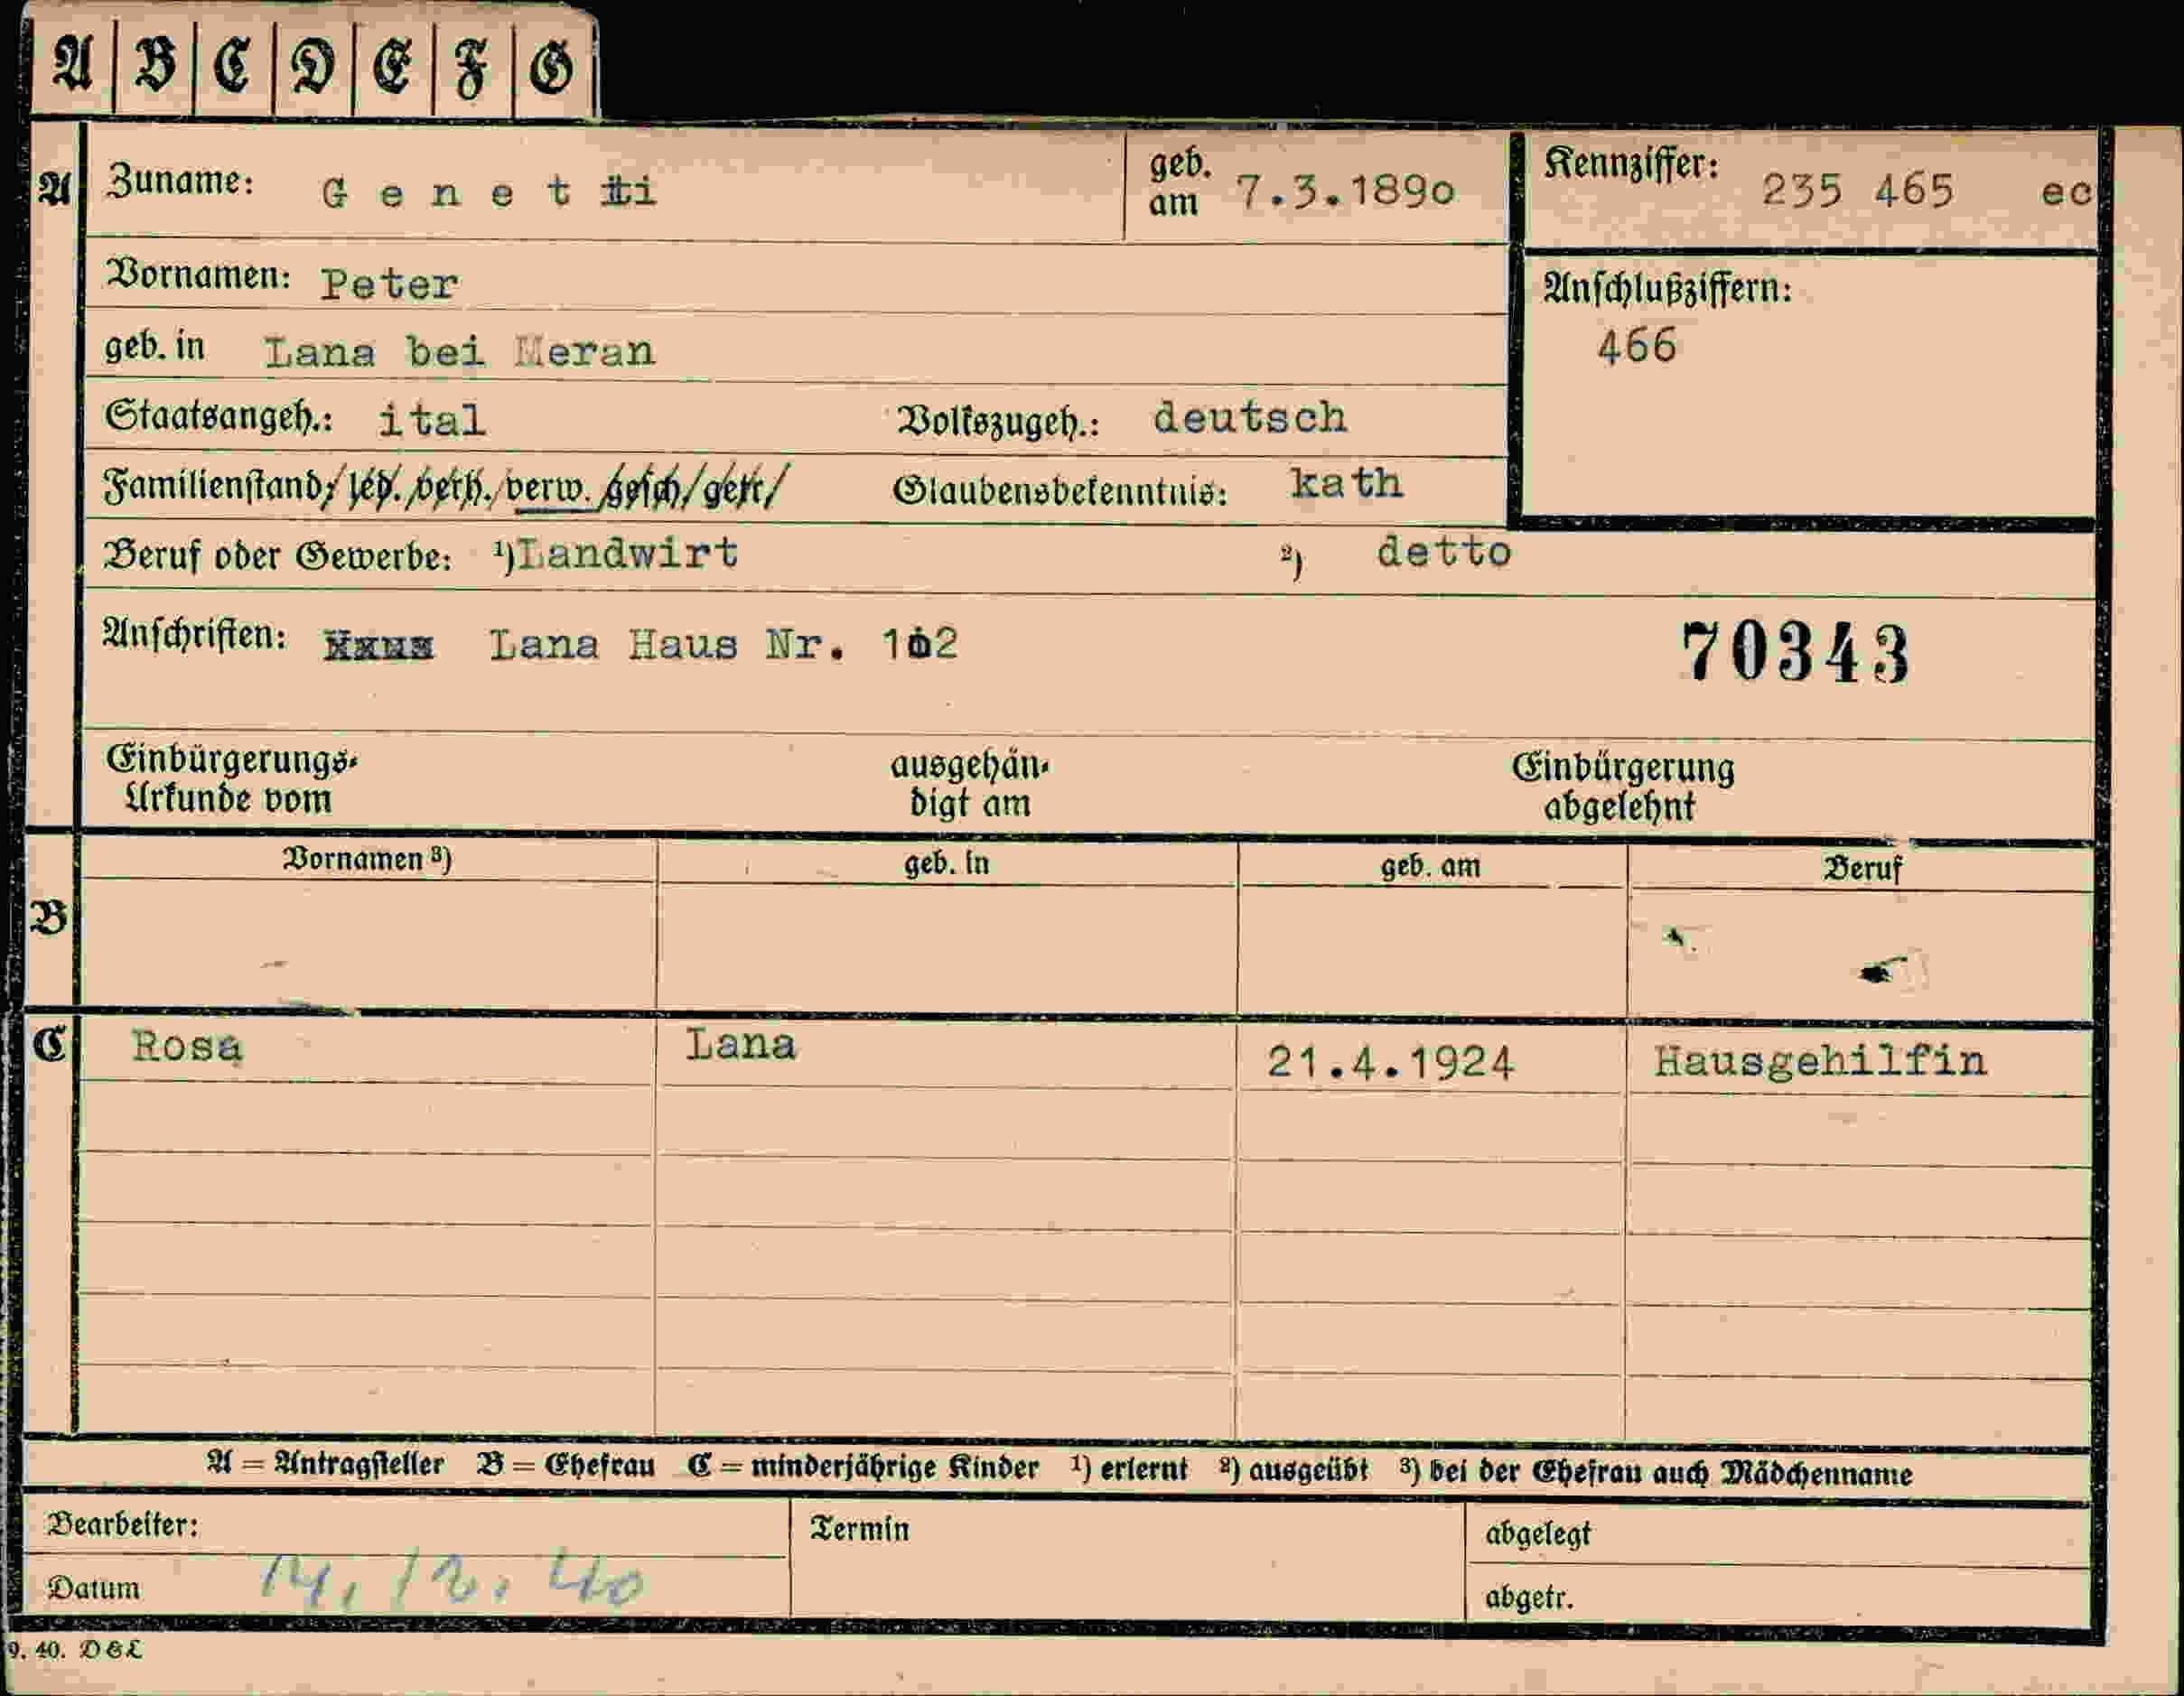 A B C D E F G
A Zuname: Genetti geb. am 7.3.1890 Kennziffer: 235 465 ec
Vornamen: Peter
Anschlußziffern:
466
geb. in Lana bei Meran
Staatsangeh.: ital Volkszugeh.: deutsch
Familienstand: led. verh. verw. gesch. getr. Glaubensbekenntnis: kath
Beruf oder Gewerbe: ¹) Landwirt ²) detto
Anschriften: Lana Haus Nr. 102 70343
Einbürgerungs-Urkunde vom ausgehän-digt am Einbürgerung abgelehnt
Vornamen ³) geb. in geb. am Beruf
B
C Rosa Lana 21.4.1924 Hausgehilfin
A = Antragsteller B = Ehefrau C = minderjährige Kinder ¹) erlernt ²) ausgeübt ³) bei der Ehefrau auch Mädchenname
Bearbeiter: Termin abgelegt
Datum 14.12.40 abgetr.
9. 40. D